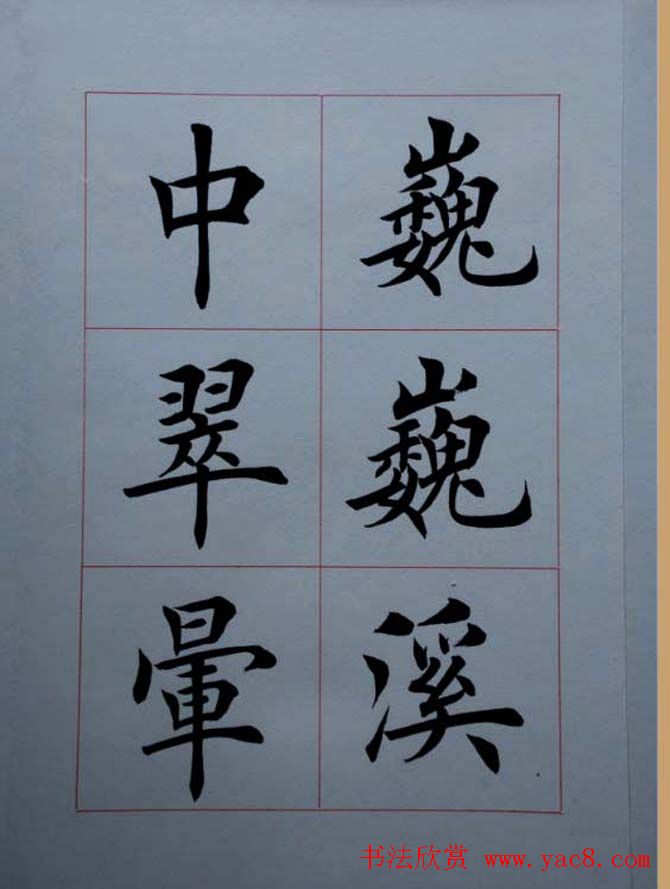 巍巍溪
中翠暈
书法欣赏 www.yac8.com